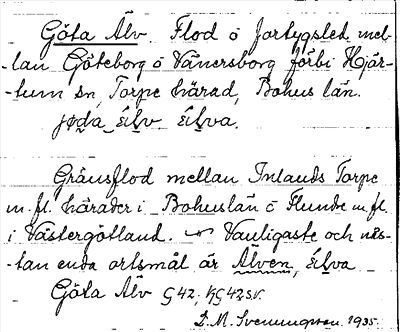 Göta Älv. Flod o fartygsled mel-
-lan Göteborg o Vänersborg förbi Hjär-
-tum sn, Torpe härad, Bohus län.
Gränsflod mellan Inlands Torpe
m.fl. härader i Bohuslän o Flundre m.fl.
i Västergötland. Vanligaste och näs-
-tan enda ortsmål är Älven,
Göta Älv G42.
D. M. Svenningson. 1935.